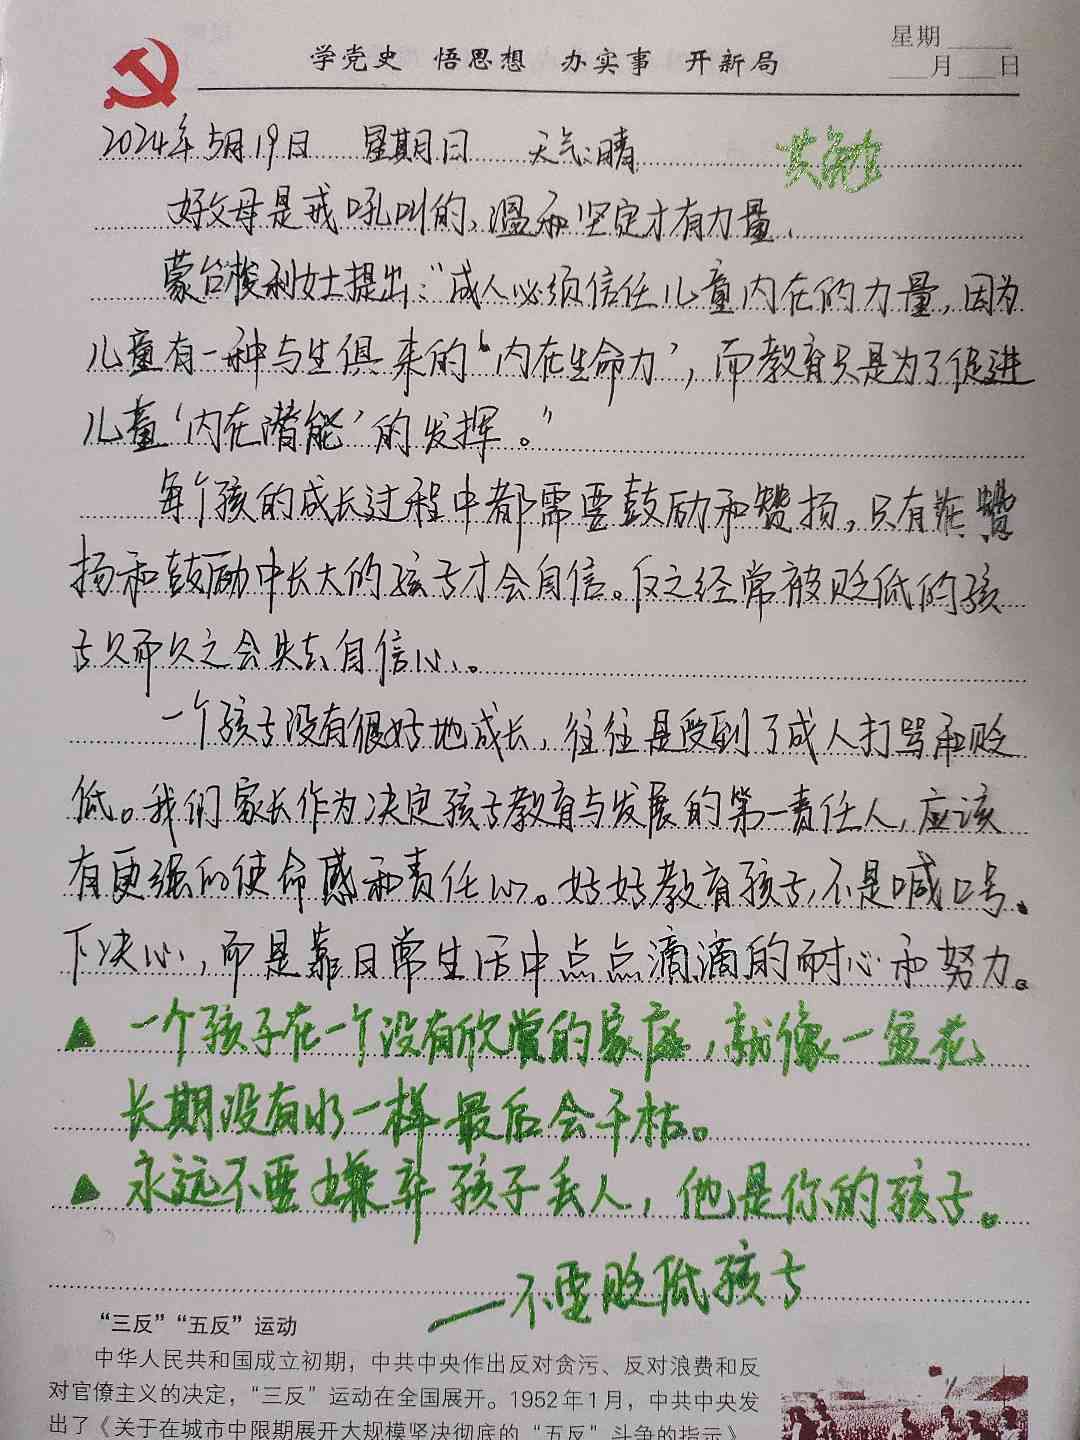 学党史 悟思想 办实事 开新局
星期
月 日
2024年5月19日 星期日 天气:晴 共勉
好父母是戒吼叫的,温和坚定才有力量.
蒙台梭利女士提出:“成人必须信任儿童内在的力量,因为
儿童有一种与生俱来的‘内在生命力’,而教育只是为了促进
儿童‘内在潜能’的发挥。”
每个孩的成长过程中都需要鼓励和赞扬,只有在赞
扬和鼓励中长大的孩子才会自信。反之经常被贬低的孩
子久而久之会失去自信心。
一个孩子没有很好地成长,往往是受到了成人打骂和贬
低。我们家长作为决定孩子教育与发展的第一责任人,应该
有更强的使命感和责任心。好好教育孩子,不是喊口号、
下决心,而是靠日常生活中点点滴滴的耐心和努力。
▲ 一个孩子在一个没有欣赏的家庭,就像一盆花
长期没有水一样最后会干枯。
▲ 永远不要嫌弃孩子丢人,他是你的孩子。
—不要贬低孩子
“三反”“五反”运动
中华人民共和国成立初期,中共中央作出反对贪污、反对浪费和反
对官僚主义的决定,“三反”运动在全国展开。1952年1月,中共中央发
出了《关于在城市中限期展开大规模坚决彻底的“五反”斗争的指示》